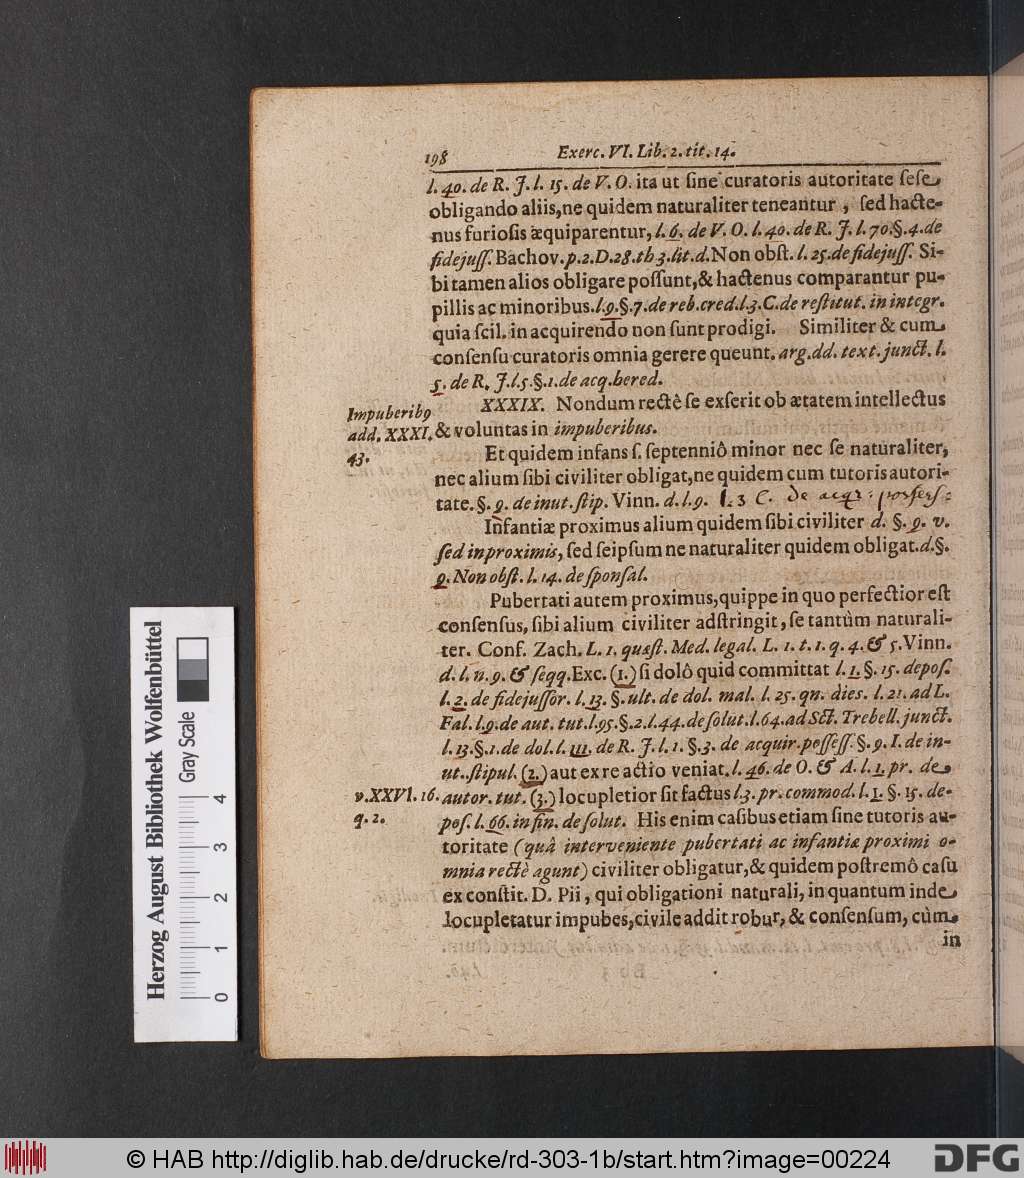 198 Exerc. VI. Lib. 2. tit. 14.
l. 40. de R. J. l. 15. de V. O. ita ut ſine curatoris autoritate ſeſe
obligando aliis, ne quidem naturaliter teneantur, ſed hacte-
nus furioſis æquiparentur, l. 6. de V. O. l. 40. de R. J. l. 70. §. 4. de
fidejuſſ. Bachov. p. 2. D. 28. th 3. lit. d. Non obſt. l. 25. de fidejuſſ. Si-
bi tamen alios obligare poſſunt, & hactenus comparantur pu-
pillis ac minoribus. l. 9. §. 7. de reb. cred. l. 3. C. de reſtitut. in integr.
quia ſcil. in acquirendo non ſunt prodigi. Similiter & cum
conſenſu curatoris omnia gerere queunt. arg. dd. text. junct. l.
5. de R. J. l. 5. §. 1. de acq. hered.
XXXIX. Nondum rectè ſe exſerit ob ætatem intellectus
Impuberibꝰ
add. XXXI.
43.
& voluntas in impuberibus.
Et quidem infans ſ. ſeptenniô minor nec ſe naturaliter,
nec alium ſibi civiliter obligat, ne quidem cum tutoris autori-
tate. §. 9. de inut. ſtip. Vinn. d. l. 9. l. 3 C. de acqr: possess:
Infantiæ proximus alium quidem ſibi civiliter d. §. 9. v.
ſed in proximis, ſed ſeipſum ne naturaliter quidem obligat. d. §.
9. Non obſt. l. 14. de ſponſal.
Pubertati autem proximus, quippe in quo perfectior eſt
conſenſus, ſibi alium civiliter adſtringit, ſe tantùm naturali-
ter. Conf. Zach. L. 1. quæſt. Med. legal. L. 1. t. 1. q. 4. & 5. Vinn.
d. l. n. 9. & ſeqq. Exc. (1.) ſi dolô quid committat l. 1. §. 15. depoſ.
l. 2. de fidejuſſor. l. 13. §. ult. de dol. mal. l. 25. qn. dies. l. 21. ad L.
Fal. l. 9. de aut. tut. l. 95. §. 2. l. 44. de ſolut. l. 64. ad Sct. Trebell. junct.
l. 13. §. 1. de dol. l. 111. de R. J. l. 1. §. 3. de acquir. poſſeſſ. §. 9. I. de in-
ut. ſtipul. (2.) aut ex re actio veniat. l. 46. de O. & A. l. 1. pr. de
v. XXVI. 16.
q. 2.
autor. tut. (3.) locupletior ſit factus l. 3. pr. commod. l. 1. §. 15. de-
poſ. l. 66. in fin. de ſolut. His enim caſibus etiam ſine tutoris au-
toritate (quâ interveniente pubertati ac infantiæ proximi o-
mnia rectè agunt) civiliter obligatur, & quidem poſtremô caſu
ex conſtit. D. Pii, qui obligationi naturali, in quantum inde
locupletatur impubes, civile addit robur, & conſenſum, cùm
in
Herzog August Bibliothek Wolfenbüttel
Gray Scale
0 1 2 3 4
© HAB http://diglib.hab.de/drucke/rd-303-1b/start.htm?image=00224
DFG